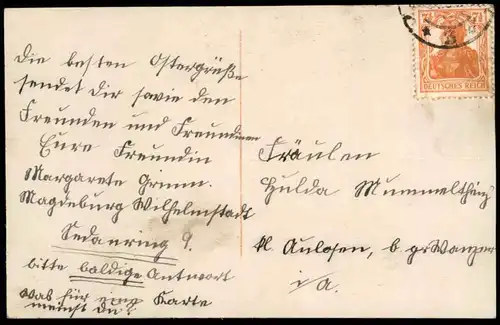 Die besten Ostergrüße
sendet Dir sowie den
Freunden und Freundinnen
Eure Freundin
Margarete Grimm.
Magdeburg Wilhelmstadt
Sedanring 9.
bitte baldige Antwort
was für eine Karte
meinst du?
DEUTSCHES REICH
Fräulen
Hulda Mummelthinz
kl. Aulosen, b. gr Wanzer
i/a.